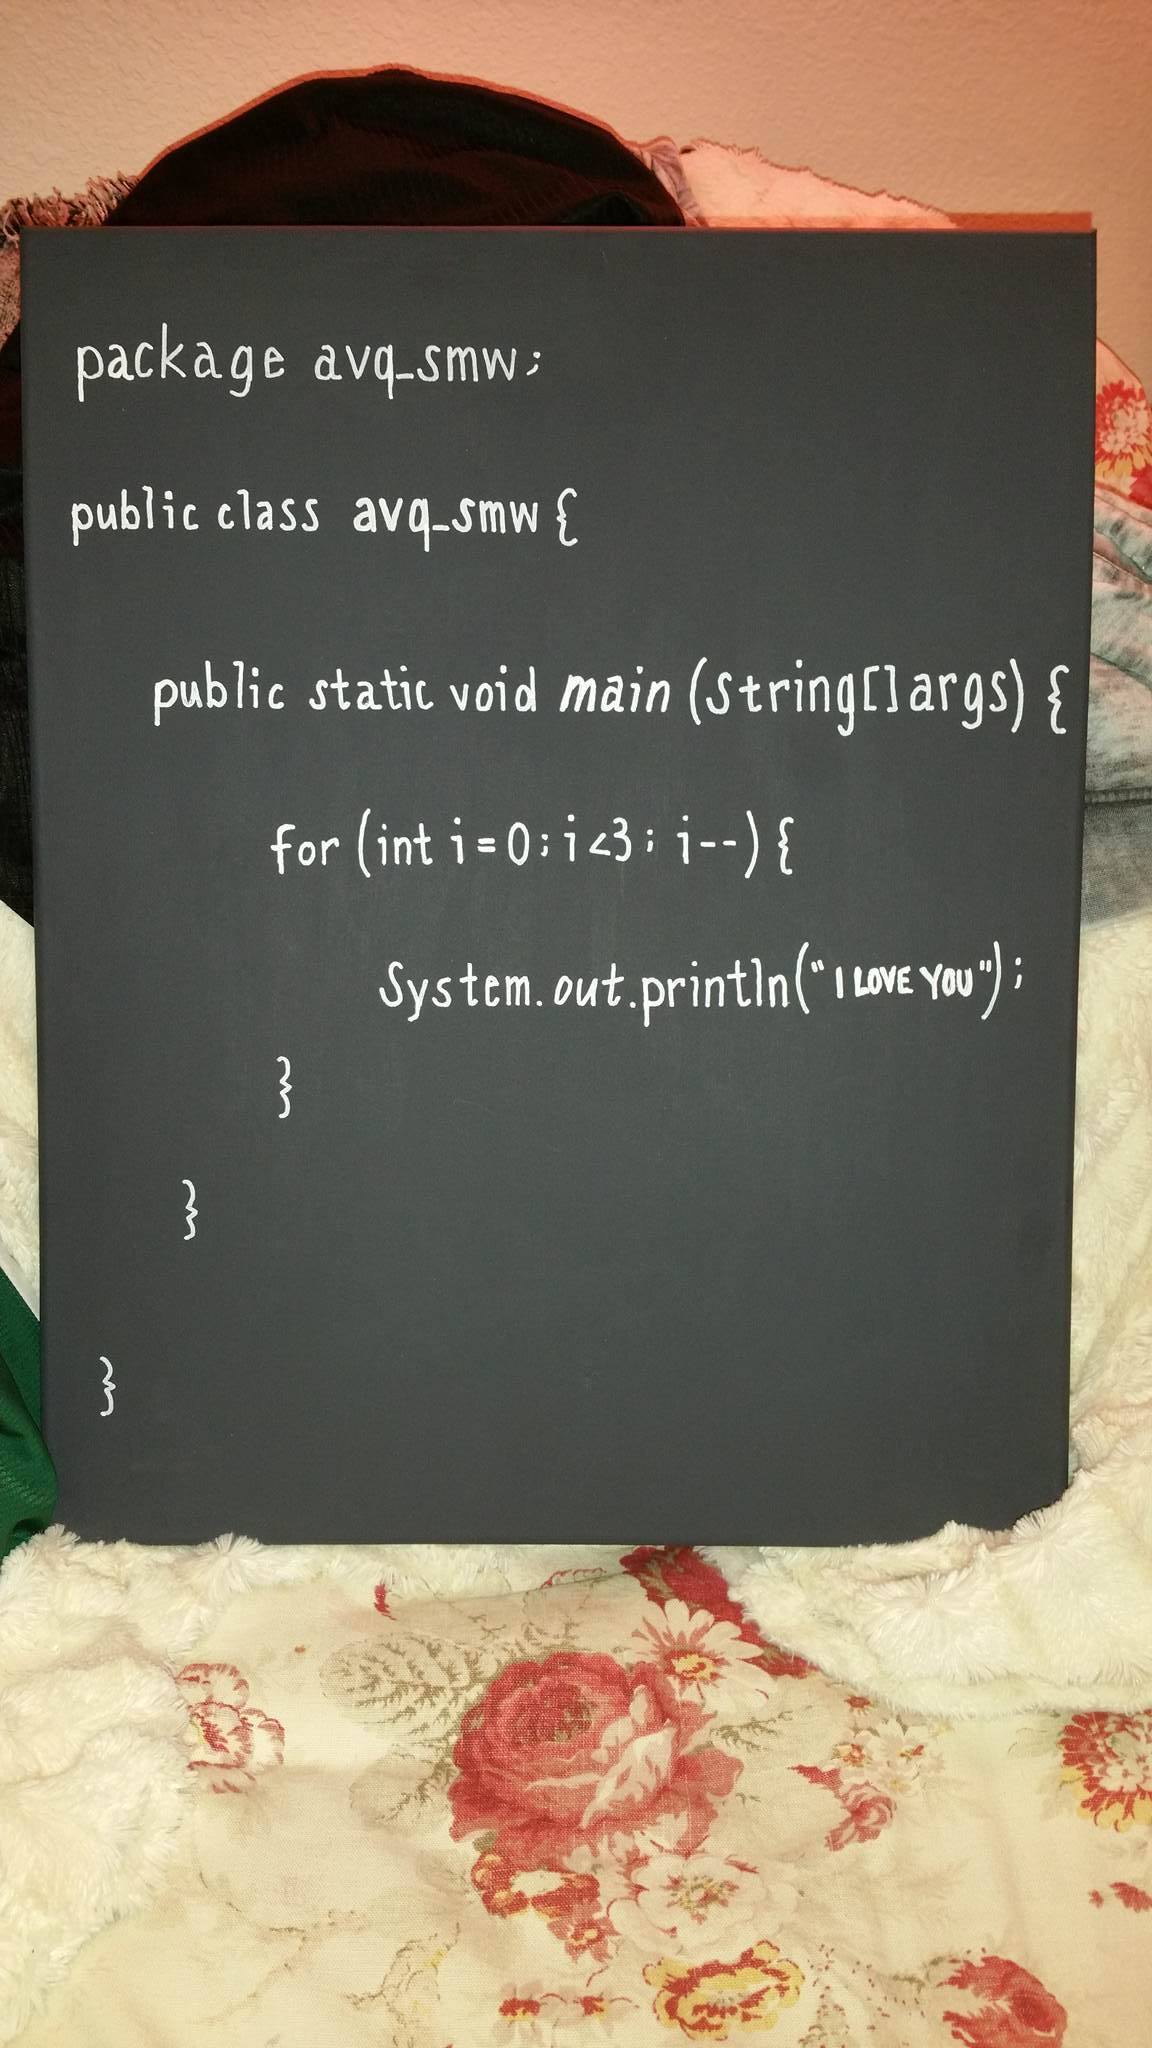 package avq_smw;
public class avq_smw {
public static void main (String[] args) {
for (int i=0; i<3; i--) {
System.out.println("I LOVE YOU");
}
}
}